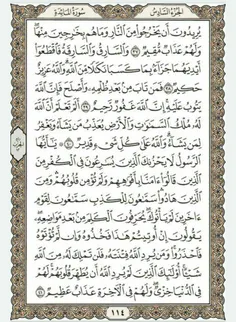 الجزء السادس سورة المائدة
يريدون أن يخرجوا من النار وما هم بخارجين منها
ولهم عذاب مقيم ٣٧ والسارق والسارقة فاقطعوا
أيديهما جزاء بما كسبا نكالا من الله والله عزيز
حكيم ٣٨ فمن تاب من بعد ظلمه وأصلح فإن الله
يتوب عليه إن الله غفور رحيم ٣٩ ألم تعلم أن الله
له ملك السموات والأرض يعذب من يشاء ويغفر
لمن يشاء والله على كل شيء قدير ٤٠ يأيها
الرسول لا يحزنك الذين يسرعون في الكفر من
الذين قالوا ءامنا بأفوههم ولم تؤمن قلوبهم ومن
الذين هادوا سمعون للكذب سمعون لقوم
ءاخرين لم يأتوك يحرفون الكلم من بعد مواضعه
يقولون إن أوتيتم هذا فخذوه وإن لم تؤتوه
فاحذروا ومن يرد الله فتنته فلن تملك له من الله
شيئا أولئك الذين لم يرد الله أن يطهر قلوبهم لهم
في الدنيا خزي ولهم في الآخرة عذاب عظيم ٤١
١١٤